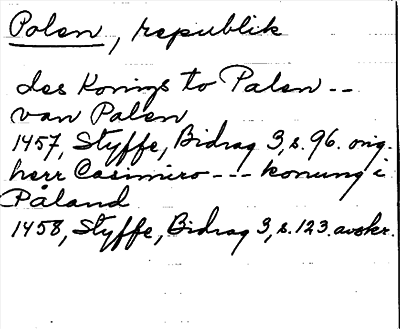 Polen, republik
des Konigs to Palen --
van Palen
1457, Styffe, Bidrag 3, s. 96. orig.
herr Casimiro --- konung i
Påland
1458, Styffe, Bidrag 3, s. 123. avskr.